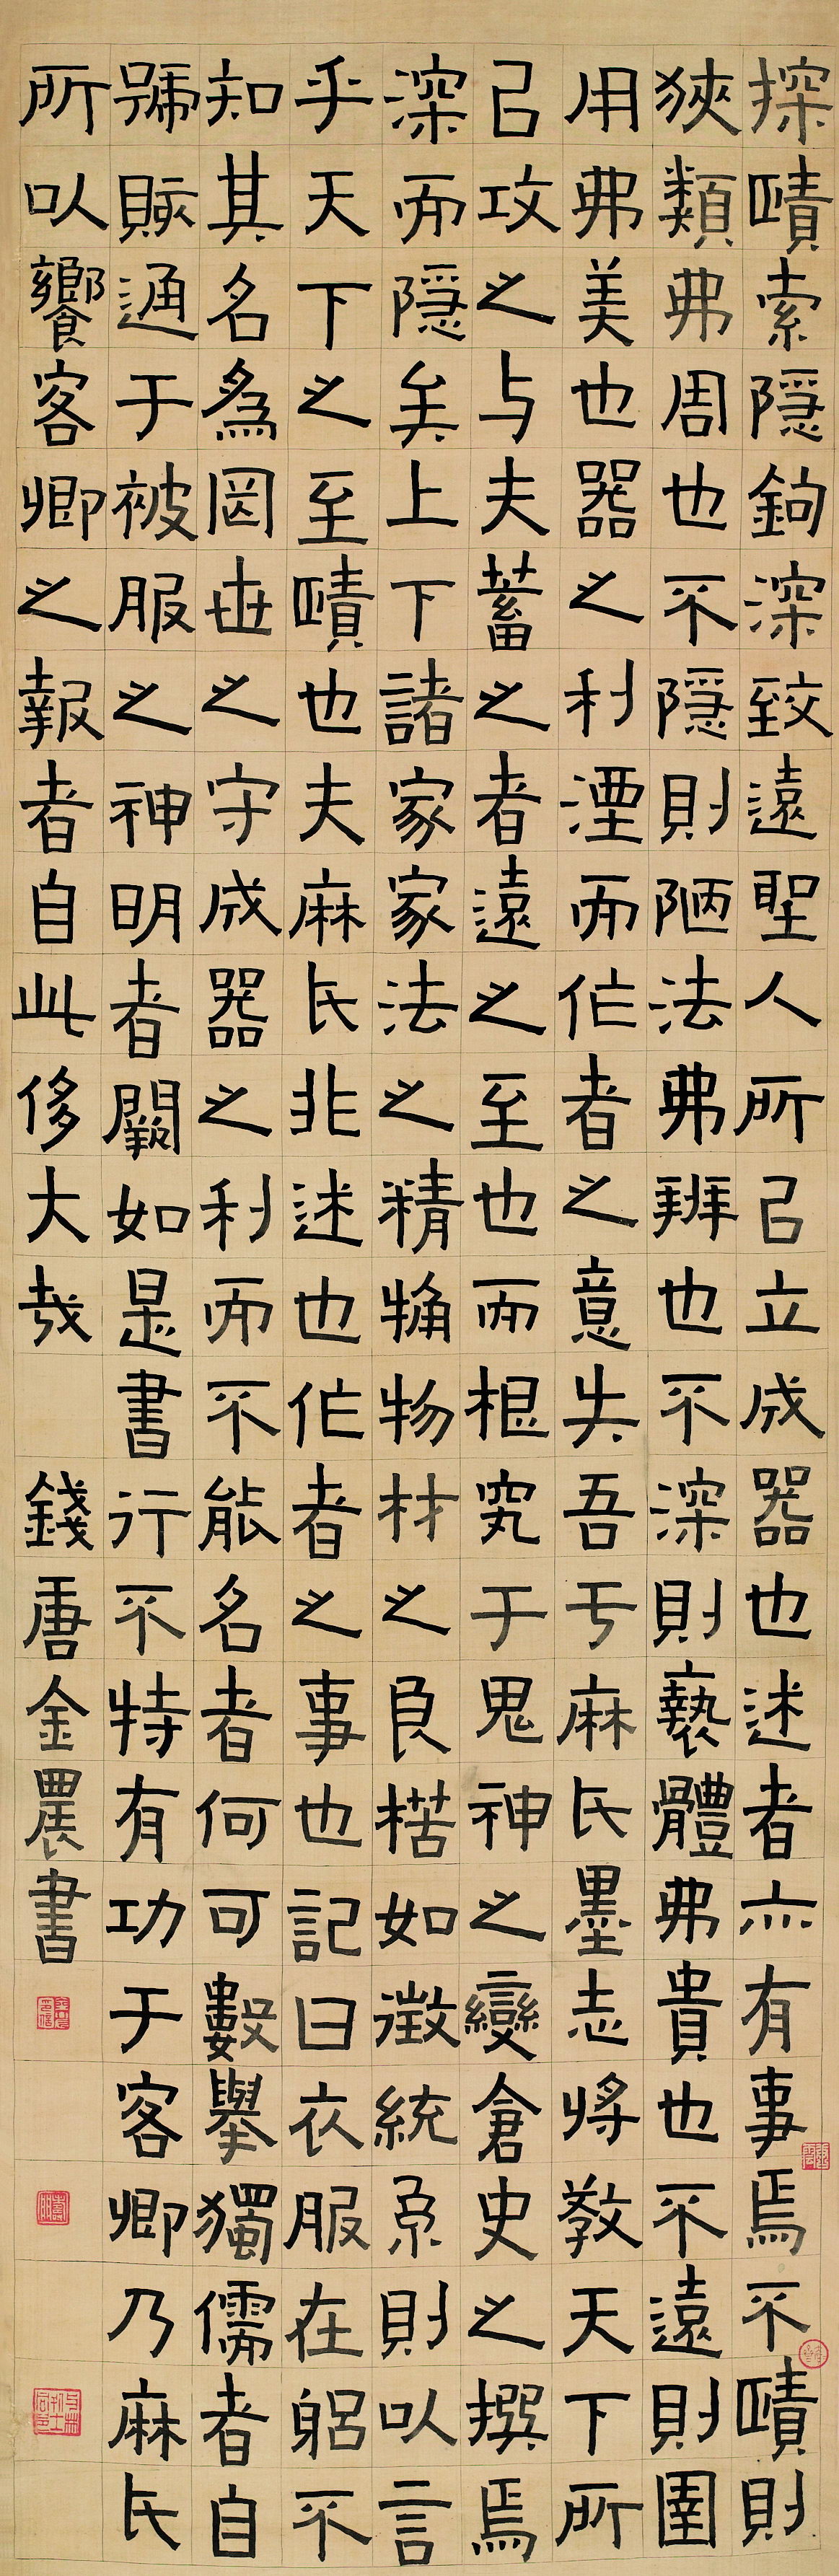 探賾索隱鉤深致遠聖人所㠯立成器也述者亦有事焉不賾則
狹類弗周也不隱則陋法弗辨也不深則褻體弗貴也不遠則圉
用弗美也器之利湮而作者之意失吾于麻氏墨志將教天下所
㠯攻之与夫蓄之者遠之至也而根究于鬼神之變倉史之撰焉
深而隱矣上下諸家家法之精觕物材之良楛如徵統系則以言
乎天下之至賾也夫麻氏非述也作者之事也記曰衣服在躳不
知其名為罔世之守成器之利而不能名者何可數舉獨儒者自
號賅通于被服之神明者闕如是書行不特有功于客卿乃麻氏
所以饗客卿之報者自此侈大哉
錢唐金農書